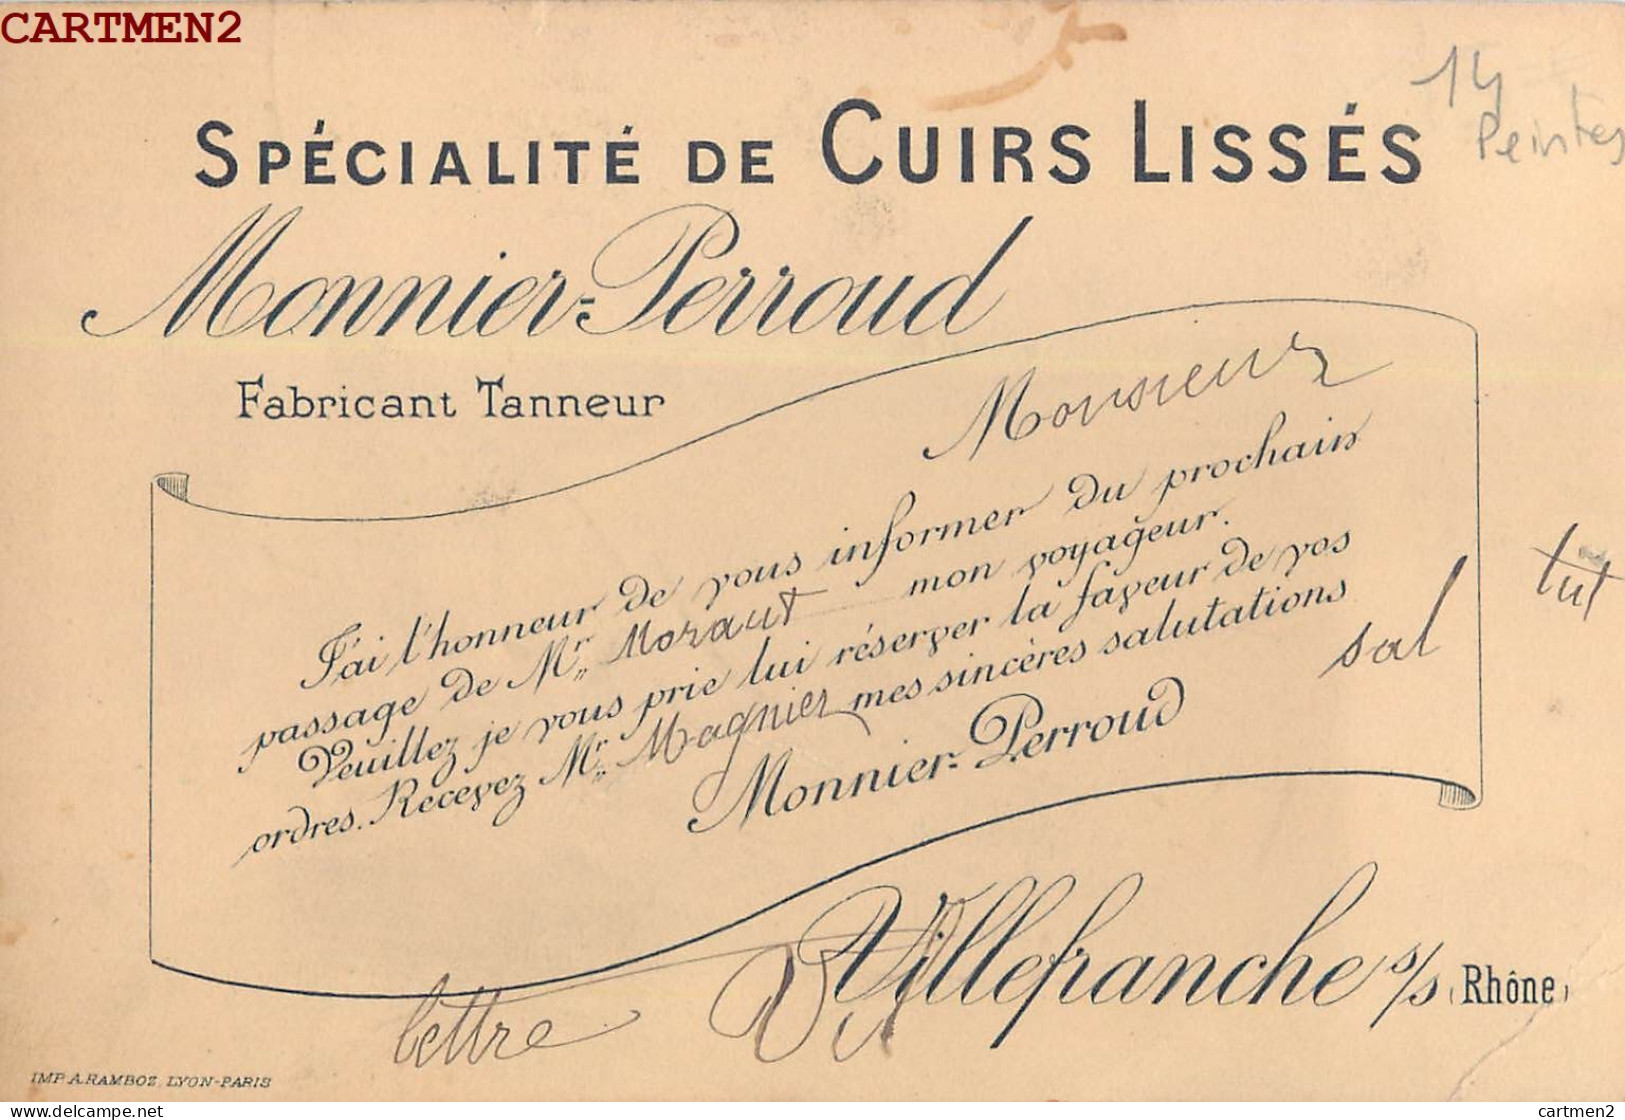 CARTMEN2
14
Peintes
SPÉCIALITÉ DE CUIRS LISSÉS
Monnier-Perroud
Fabricant Tanneur
Monsieur
J'ai l'honneur de vous informer du prochain
passage de Mr. Moraut mon voyageur.
Veuillez je vous prie lui réserver la faveur de vos
ordres. Recevez Mr. Magnier mes sincères salutations
Monnier-Perroud
sal
tut
Villefranche s/s (Rhône)
lettre
IMP. A. RAMBOZ, LYON-PARIS
delcampe.net
cartmen2